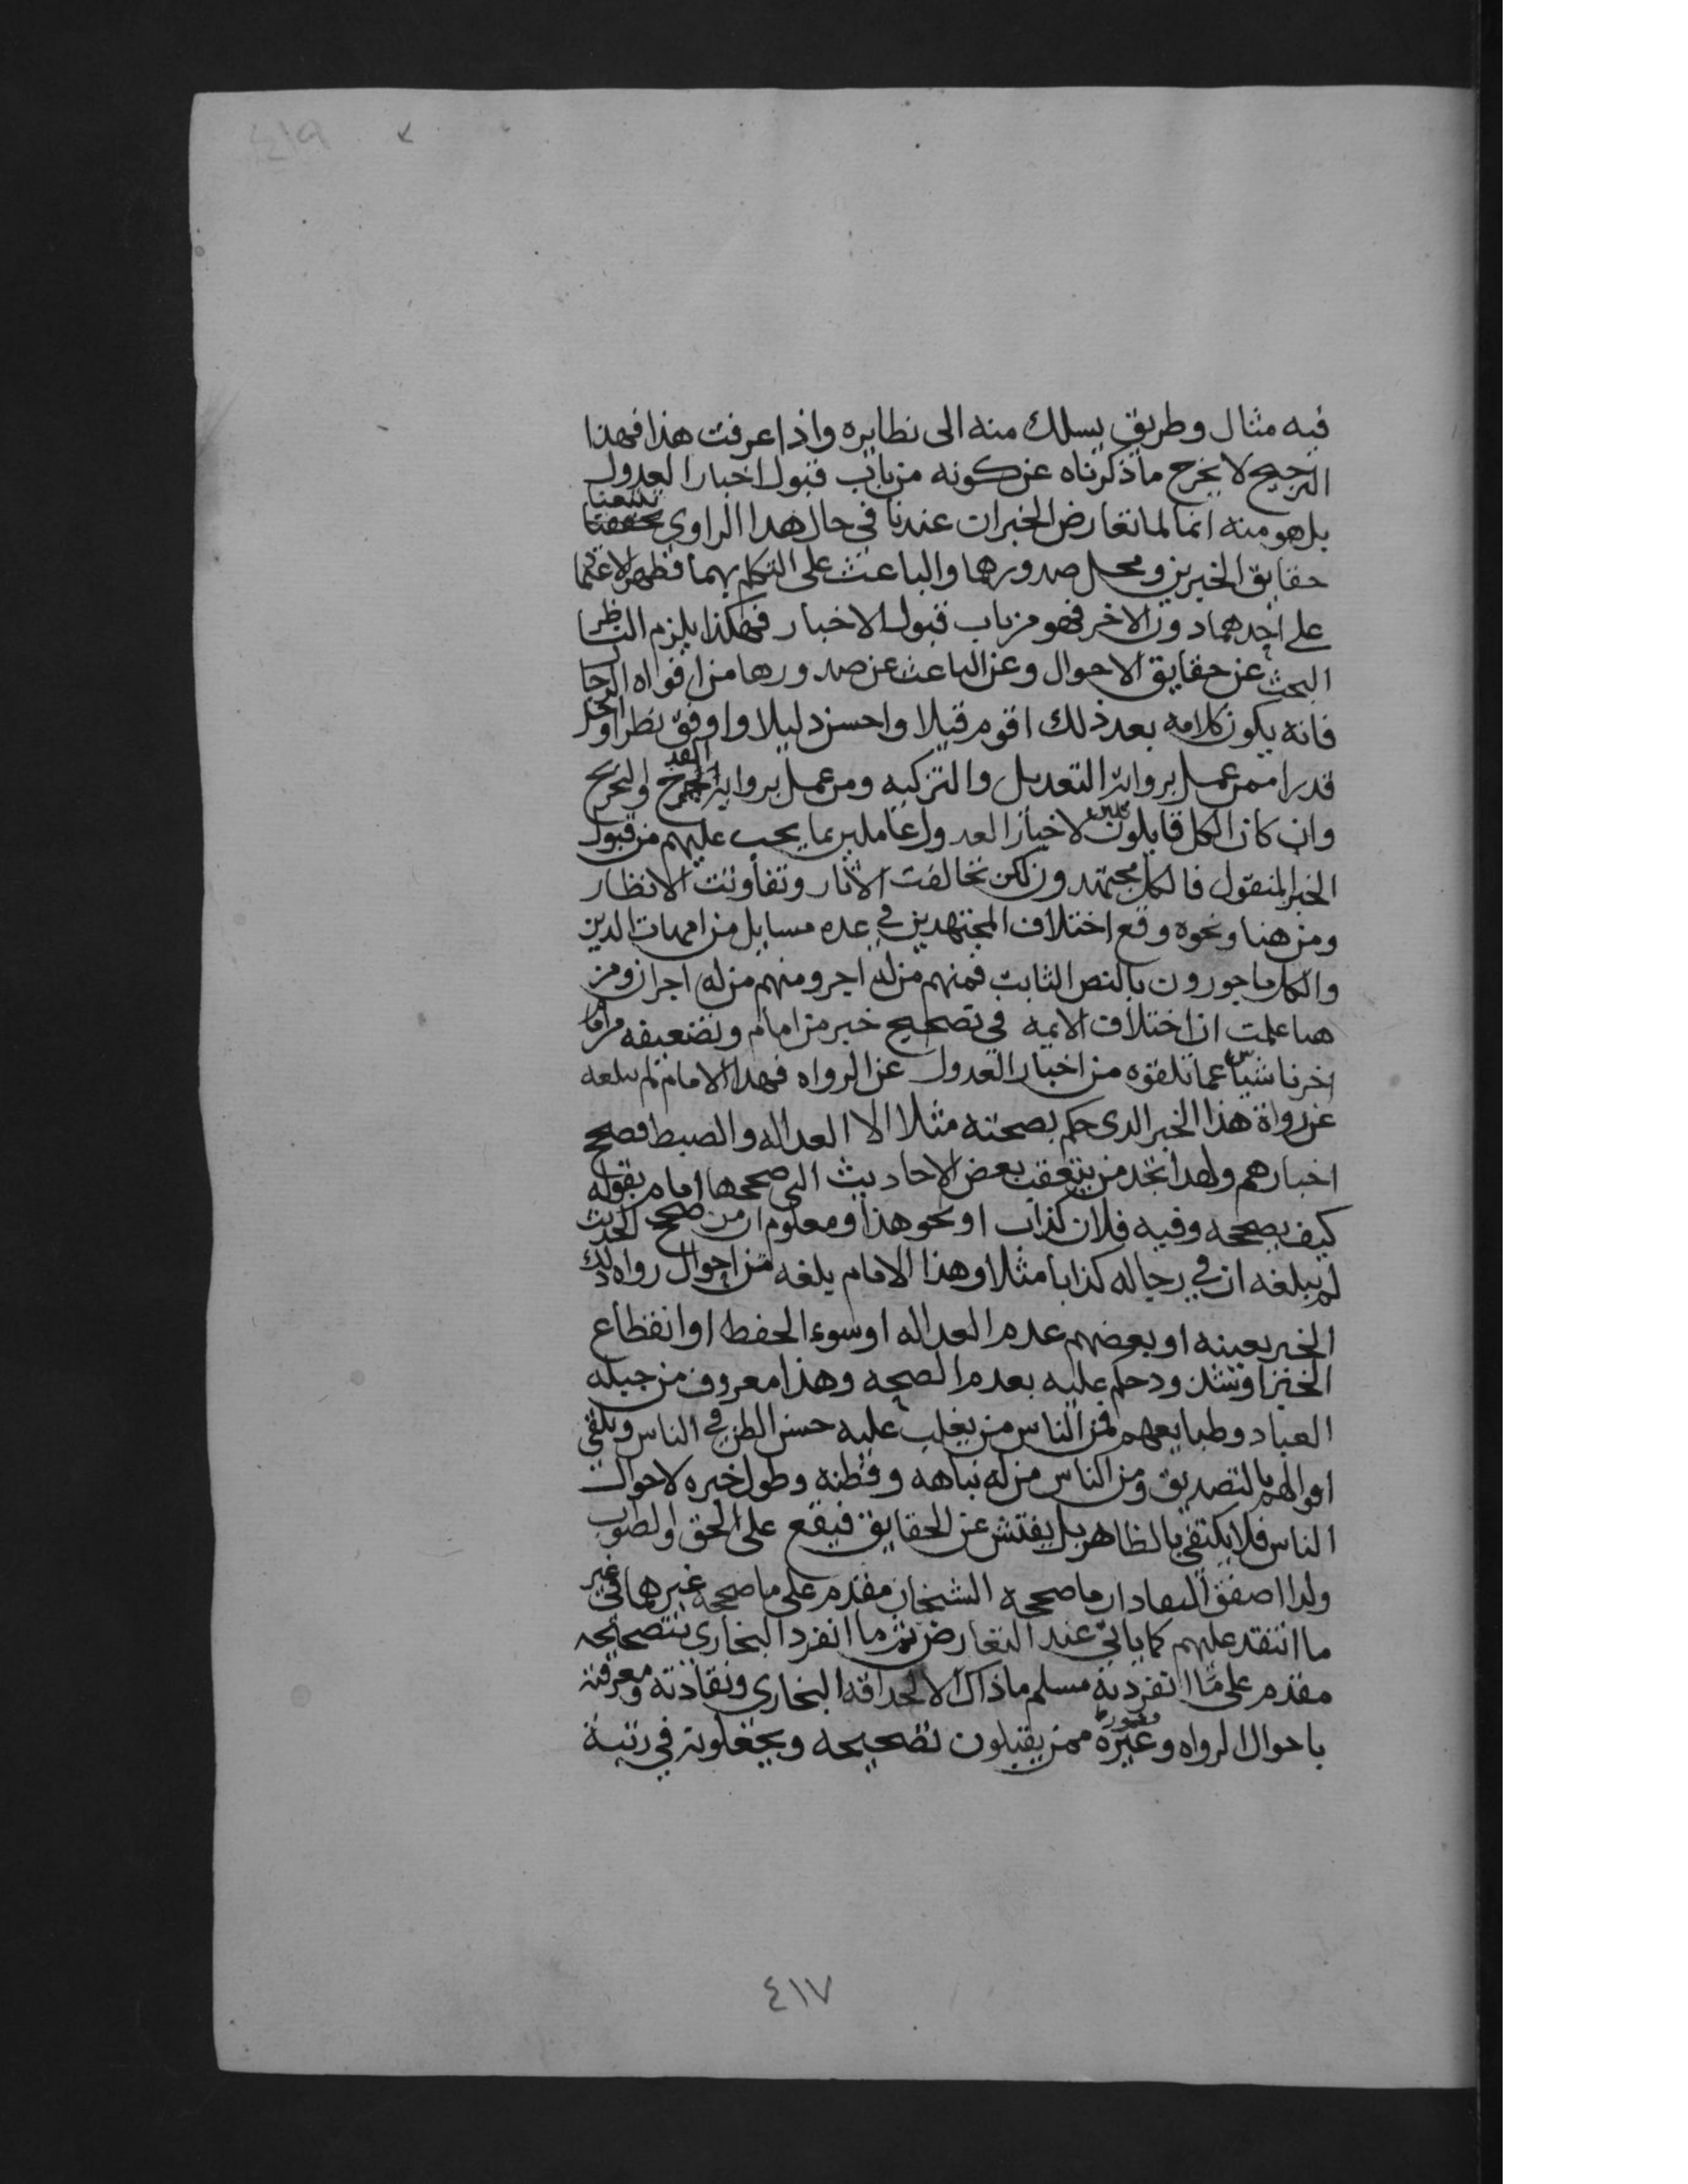 فيه مثال وطريق يسلك منه الى نظايره واذا عرفت هذا فهذا
الترجيح لا يخرج ما ذكرناه عن كونه من باب قبول اخبار العدول
بل هو منه انما لما تعارض الخبران عندنا في حال هذا الراوي تتبعنا
حقايق الخبرين ومحل صدورها والباعث على التكلم بهما فظهر الاعتماد
على احدهما دون الاخر فهو من باب قبول الاخبار فهكذا يلزم الناظر
البحث عن حقايق الاحوال وعن الباعث عن صدورها من افواه الرجال
فانه يكون كلامه بعد ذلك اقوم قيلا واحسن دليلا واوفق نظرا واجل
قدرا ممن عمل برواية التعديل والتزكيه ومن عمل برواية القدح والتجريح
وان كان الكل قابلين لاخبار العدول عاملين بما يجب عليهم من قبول
الخبر المنقول فالكل مجتهدون لكن تخالفت الاثار وتفاوتت الانظار
ومن هنا ونحوه وقع اختلاف المجتهدين في عده مسايل من امهات الدين
والكل ماجورون بالنص الثابت فمنهم من له اجر ومنهم من له اجران ومن
هنا علمت ان اختلاف الايمه في تصحيح خبر من امام وتضعيفه من امام
اخر ناشئ عما تلقوه من اخبار العدول عن الرواه فهذا الامام لم يبلغه
عن رواة هذا الخبر الدى حكم بصحته مثلا الا العداله والضبط فصحح
اخبارهم ولهدا تجد من يتعقب بعض الاحاديث التى صححها امام بقوله
كيف يصححه وفيه فلان كذاب او نحو هذا ومعلوم ان من صحح الحديث
لم يبلغه ان في رجاله كذابا مثلا وهذا الامام بلغه من احوال رواه ذلك
الخبر بعينه او بعضهم عدم العداله او سوء الحفظ او انقطاع
الخبر او شذوذ حكم عليه بعدم الصحه وهذا معروف من جبله
العباد وطبايعهم فمن الناس من يغلب عليه حسن الظن في الناس وتلقي
اقوالهم بالتصديق ومن الناس من له نباهه وفطنه وطول خبره لاحوال
الناس فلا يكتفي بالظاهر بل يفتش عن الحقايق فيقع على الحق والصواب
ولدا اصفق النقاد ان ما صححه الشيخان مقدم على ما صححه غيرهما في غير
ما انتقد عليهم كما ياتي عند التعارض ثم ما انفرد البخارى بتصحيحه
مقدم على ما انفرد به مسلم ما ذاك الا لحداقه البخارى ونقادته ومعرفته
باحوال الرواه وغيره ممن يقبلون تصحيحه ويجعلونه في رتبة
٤١٧